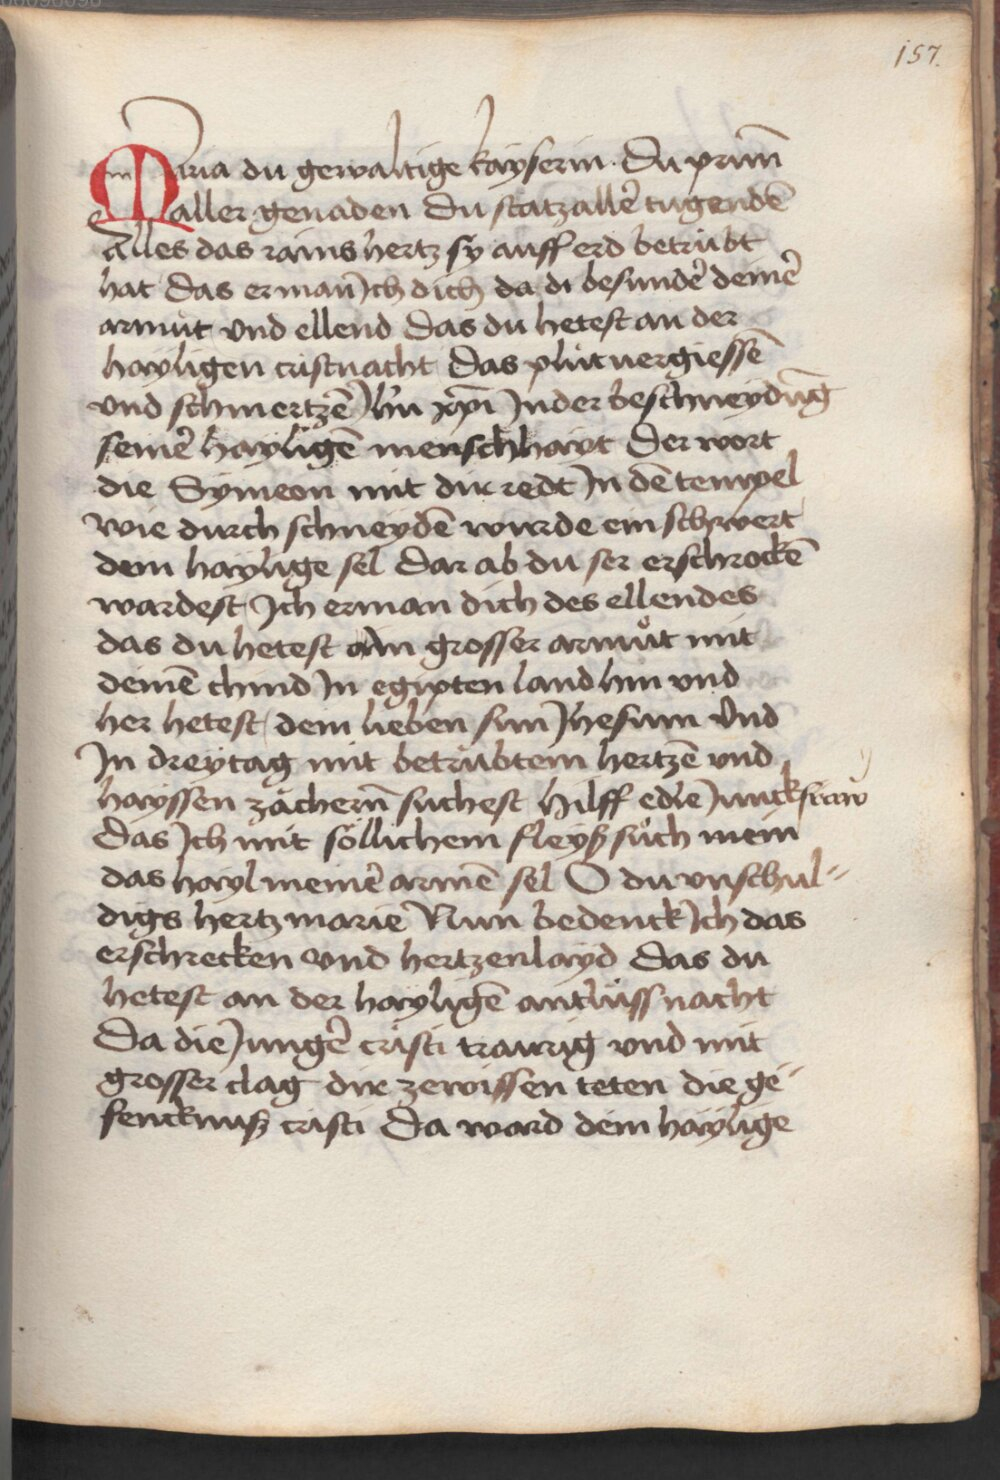 157.
Maria du gewaltige kayserin. Du prun̄
aller genaden Du scatz aller̄ tugendē
Alles das rains hertz sy auff erd betrübt
hat Das erman Ich dich da di besunder̄ deiner̄
armüt vnd ellend Das du hetest an der
hayligen cristnacht Das plütuergiessē
vnd schmertzē Jhū xp̄i In der beschneydūg
seiner̄ hayligē menschhayt Der wort
die Symeon mit dir redt In dē tempel
wie durch schneydē wurde ein schwert
dem haylige sel Dar ab du ser erschrockē
wardest Ich erman dich des ellendes
das du hetest in grosser armůt mit
deinē chind In egipten land hin vnd
her hetest dem lieben sun Jhesum Vnd
In dreytag mit betrübtem hertzē vnd
hayssen zächern̄ suchest Hilff edle Junckfraw
Das Ich mit söllichem fleyß sůch mein
das hayl meiner̄ armē sel O du vnschul-
digs hertz marie Nun bedenck Ich das
erschrecken vnd hertzenlayd Das du
hetest an der hayligē antlüssnacht
Da die Junger̄ cristi traurig vnd mit
grosser clag dir zewissen teten die ge-
fencknuß cristi Da ward dein haylige